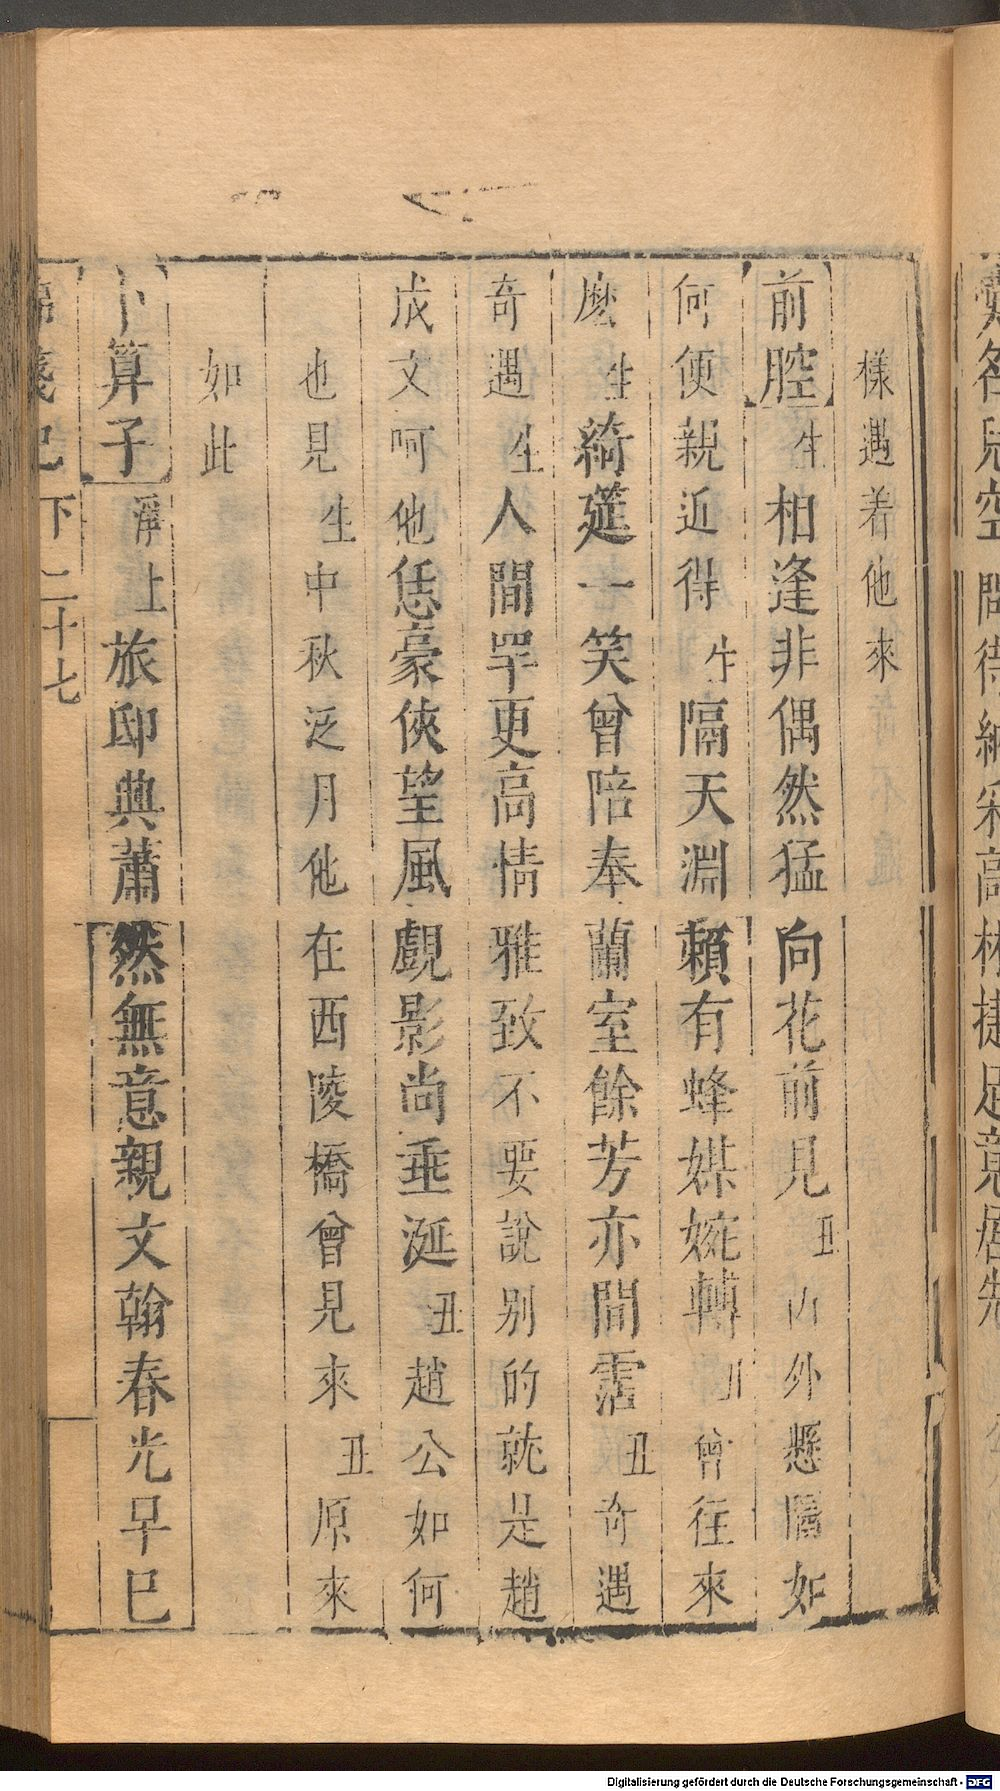 樣遇着他來
前腔 生 相逢非偶然猛向花前見 丑 內外懸隔如
何便親近得 生 隔天淵賴有蜂媒婉轉 丑 曾往來
麽 生 綺筵一笑曾陪奉蘭室餘芳亦間霑 丑 奇遇
奇遇 生 人間罕更高情雅致不要說别的就是趙
成文呵他恁豪俠望風覷影尚垂涎 丑 趙公如何
也見 生 中秋泛月他在西陵橋曾見來 丑 原來
如此
卜算子 淨上 旅邸典蕭然無意親文翰春光早巳
箋記 下 二十七
Digitalisierung gefördert durch die Deutsche Forschungsgemeinschaft - DFG